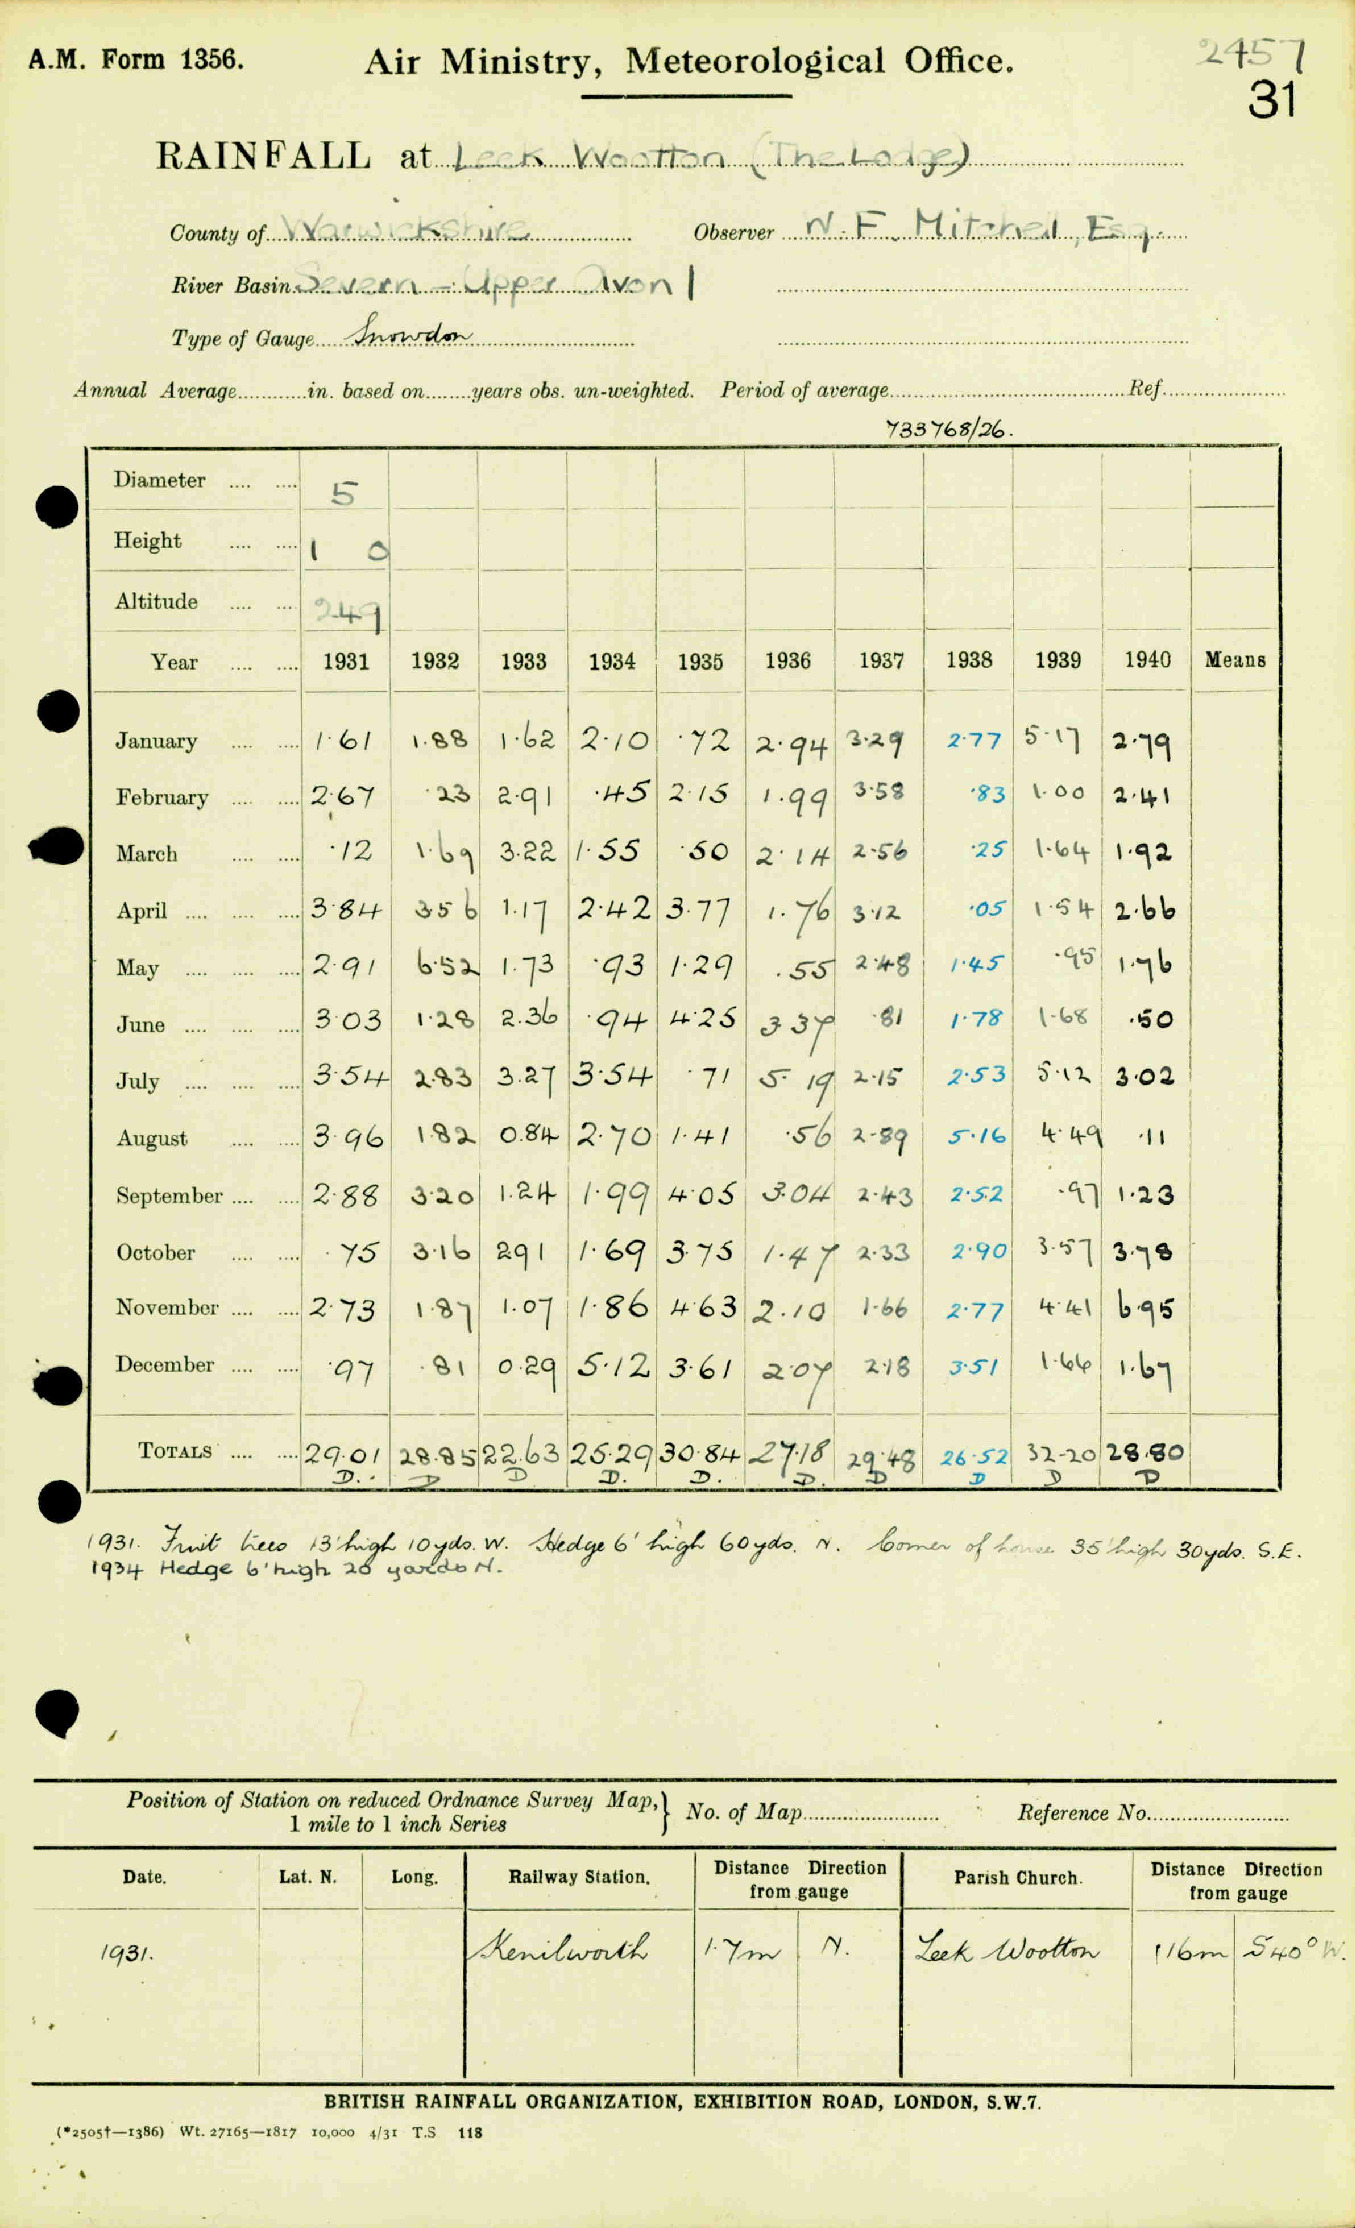 A.M. Form 1356. Air Ministry, Meteorological Office. 2457
31
RAINFALL at Leek Wootton (The Lodge)
County of Warwickshire Observer N. F. Mitchell, Esq.
River Basin Severn - Upper Avon 1
Type of Gauge Snowdon
Annual Average in. based on years obs. un-weighted. Period of average Ref.
733768/26.
Diameter 5
Height 1 0
Altitude 249
Year 1931 1932 1933 1934 1935 1936 1937 1938 1939 1940 Means
January 1.61 1.88 1.62 2.10 .72 2.94 3.29 2.77 5.17 2.79
February 2.67 .23 2.91 .45 2.15 1.99 3.58 .83 1.00 2.41
March .12 1.69 3.22 1.55 .50 2.14 2.56 .25 1.64 1.92
April 3.84 3.56 1.17 2.42 3.77 1.76 3.12 .05 1.54 2.66
May 2.91 6.52 1.73 .93 1.29 .55 2.48 1.45 .95 1.76
June 3.03 1.28 2.36 .94 4.25 3.37 .81 1.78 1.68 .50
July 3.54 2.83 3.27 3.54 .71 5.19 2.15 2.53 5.12 3.02
August 3.96 1.82 0.84 2.70 1.41 .56 2.89 5.16 4.49 .11
September 2.88 3.20 1.24 1.99 4.05 3.04 2.43 2.52 .97 1.23
October .75 3.16 2.91 1.69 3.75 1.47 2.33 2.90 3.57 3.78
November 2.73 1.87 1.07 1.86 4.63 2.10 1.66 2.77 4.41 6.95
December .97 .81 0.29 5.12 3.61 2.07 2.18 3.51 1.66 1.67
TOTALS 29.01 28.85 22.63 25.29 30.84 27.18 29.48 26.52 32.20 28.80
D. D D D. D. D. D D D D
1931. Fruit trees 13' high 10 yds. W. Hedge 6' high 60 yds. N. Corner of house 35' high 30 yds. S.E.
1934 Hedge 6' high 20 yards N.
Position of Station on reduced Ordnance Survey Map, No. of Map Reference No.
1 mile to 1 inch Series
Date. Lat. N. Long. Railway Station. Distance Direction from gauge Parish Church. Distance Direction from gauge
1931. Kenilworth 1.7m N. Leek Wootton .16m S 40° W.
BRITISH RAINFALL ORGANIZATION, EXHIBITION ROAD, LONDON, S.W.7.
(*2505†—1386) Wt. 27165—1817 10,000 4/31 T.S 118